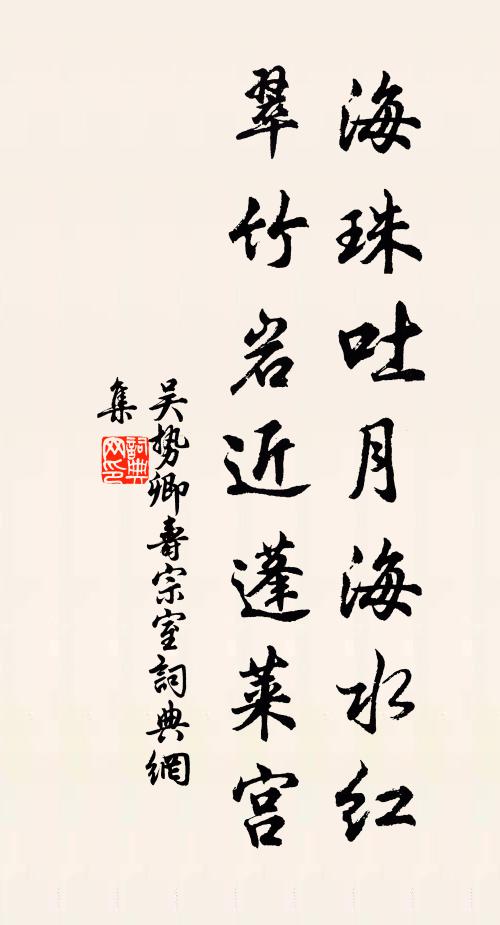 海珠吐月海水红
翠竹岩近蓬莱宫
吴势卿寿宗室词典網
集
詞典
网印